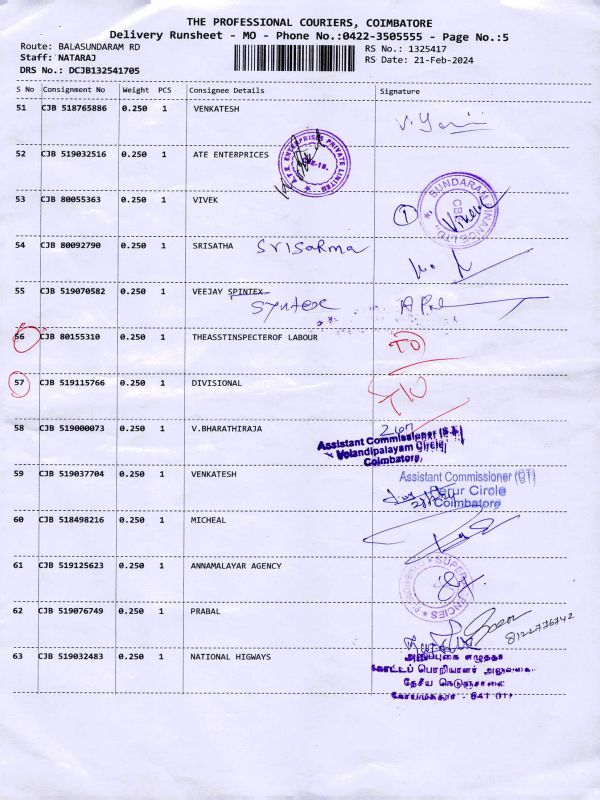 THE PROFESSIONAL COURIERS, COIMBATORE
Delivery Runsheet - MO - Phone No.:0422-3505555 - Page No.:5
Route: BALASUNDARAM RD
RS No.: 1325417
Staff: NATARAJ
RS Date: 21-Feb-2024
DRS No.: DCJB132541705
S No Consignment No Weight PCS Consignee Details Signature
51 CJB 518765886 0.250 1 VENKATESH
52 CJB 519032516 0.250 1 ATE ENTERPRICES
A.T.E. ENTERPRISES PRIVATE LIMITED
53 CJB 80055363 0.250 1 VIVEK
1
SUNDARAM FINANCE LTD.
54 CJB 80092790 0.250 1 SRISATHA Srisarma
55 CJB 519070582 0.250 1 VEEJAY SPINTEX
Syntex
56 CJB 80155310 0.250 1 THEASSTINSPECTEROF LABOUR
57 CJB 519115766 0.250 1 DIVISIONAL
58 CJB 519000073 0.250 1 V.BHARATHIRAJA
Assistant Commissioner (S.T.)
Velandipalayam Circle
Coimbatore
59 CJB 519037704 0.250 1 VENKATESH
Assistant Commissioner (CT)
Perur Circle
Coimbatore
60 CJB 518498216 0.250 1 MICHEAL
61 CJB 519125623 0.250 1 ANNAMALAYAR AGENCY
62 CJB 519076749 0.250 1 PRABAL
8122776742
63 CJB 519032483 0.250 1 NATIONAL HIGWAYS
கோட்டப் பொறியாளர்
தேசிய நெடுஞ்சாலை